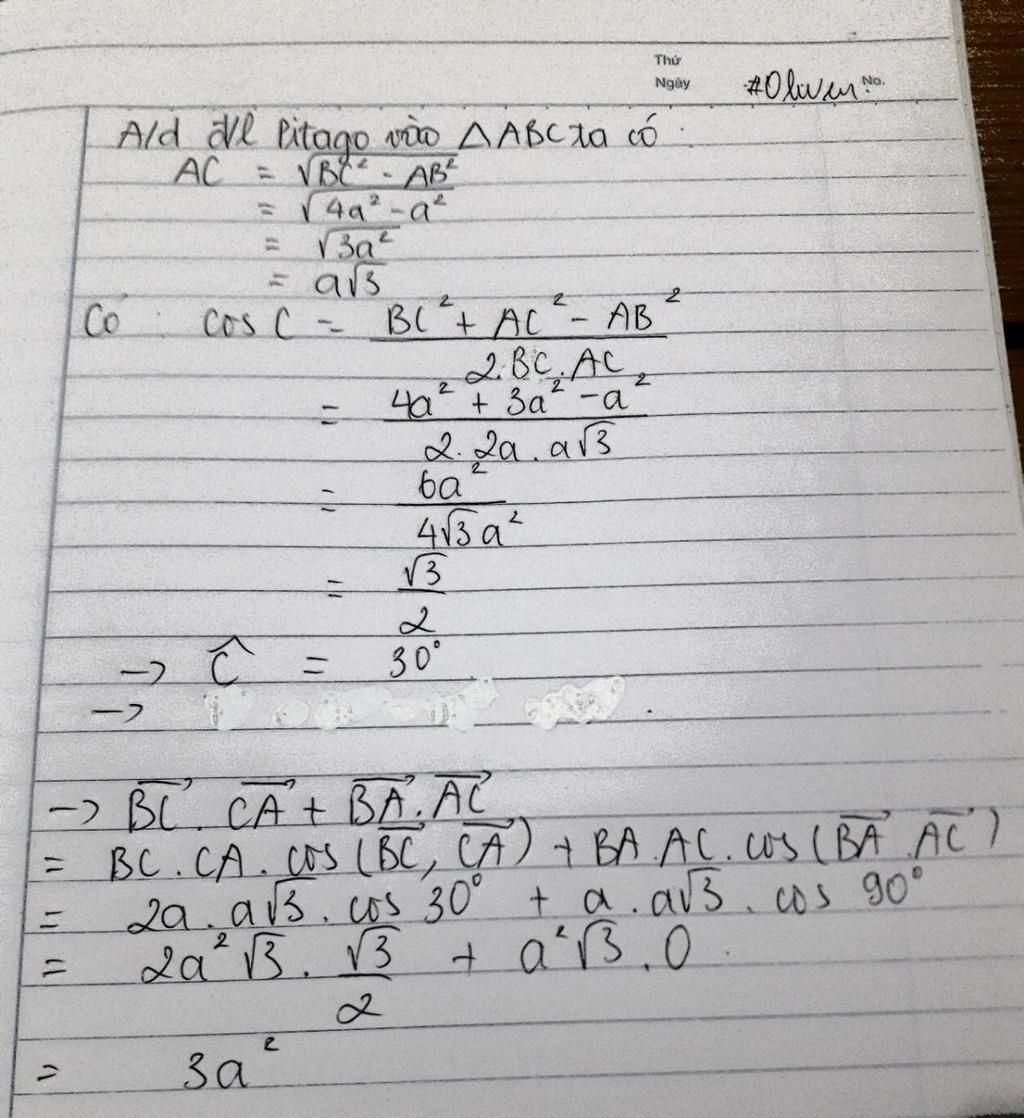 Thứ
Ngày
#Oliver No.
A/d đ/l Pitago vào △ABC ta có :
AC = √BC² - AB²
= √4a² - a²
= √3a²
= a√3
Có : cos C = BC² + AC² - AB²
2.BC.AC
= 4a² + 3a² - a²
2. 2a . a√3
= 6a²
4√3a²
= √3
2
→ Ĉ = 30°
→
→ BC⃗ . CA⃗ + BA⃗ . AC⃗
= BC.CA.cos(BC⃗, CA⃗) + BA.AC.cos(BA⃗.AC⃗)
= 2a . a√3 . cos 30° + a . a√3 . cos 90°
= 2a²√3 . √3 + a²√3 . 0
2
= 3a²